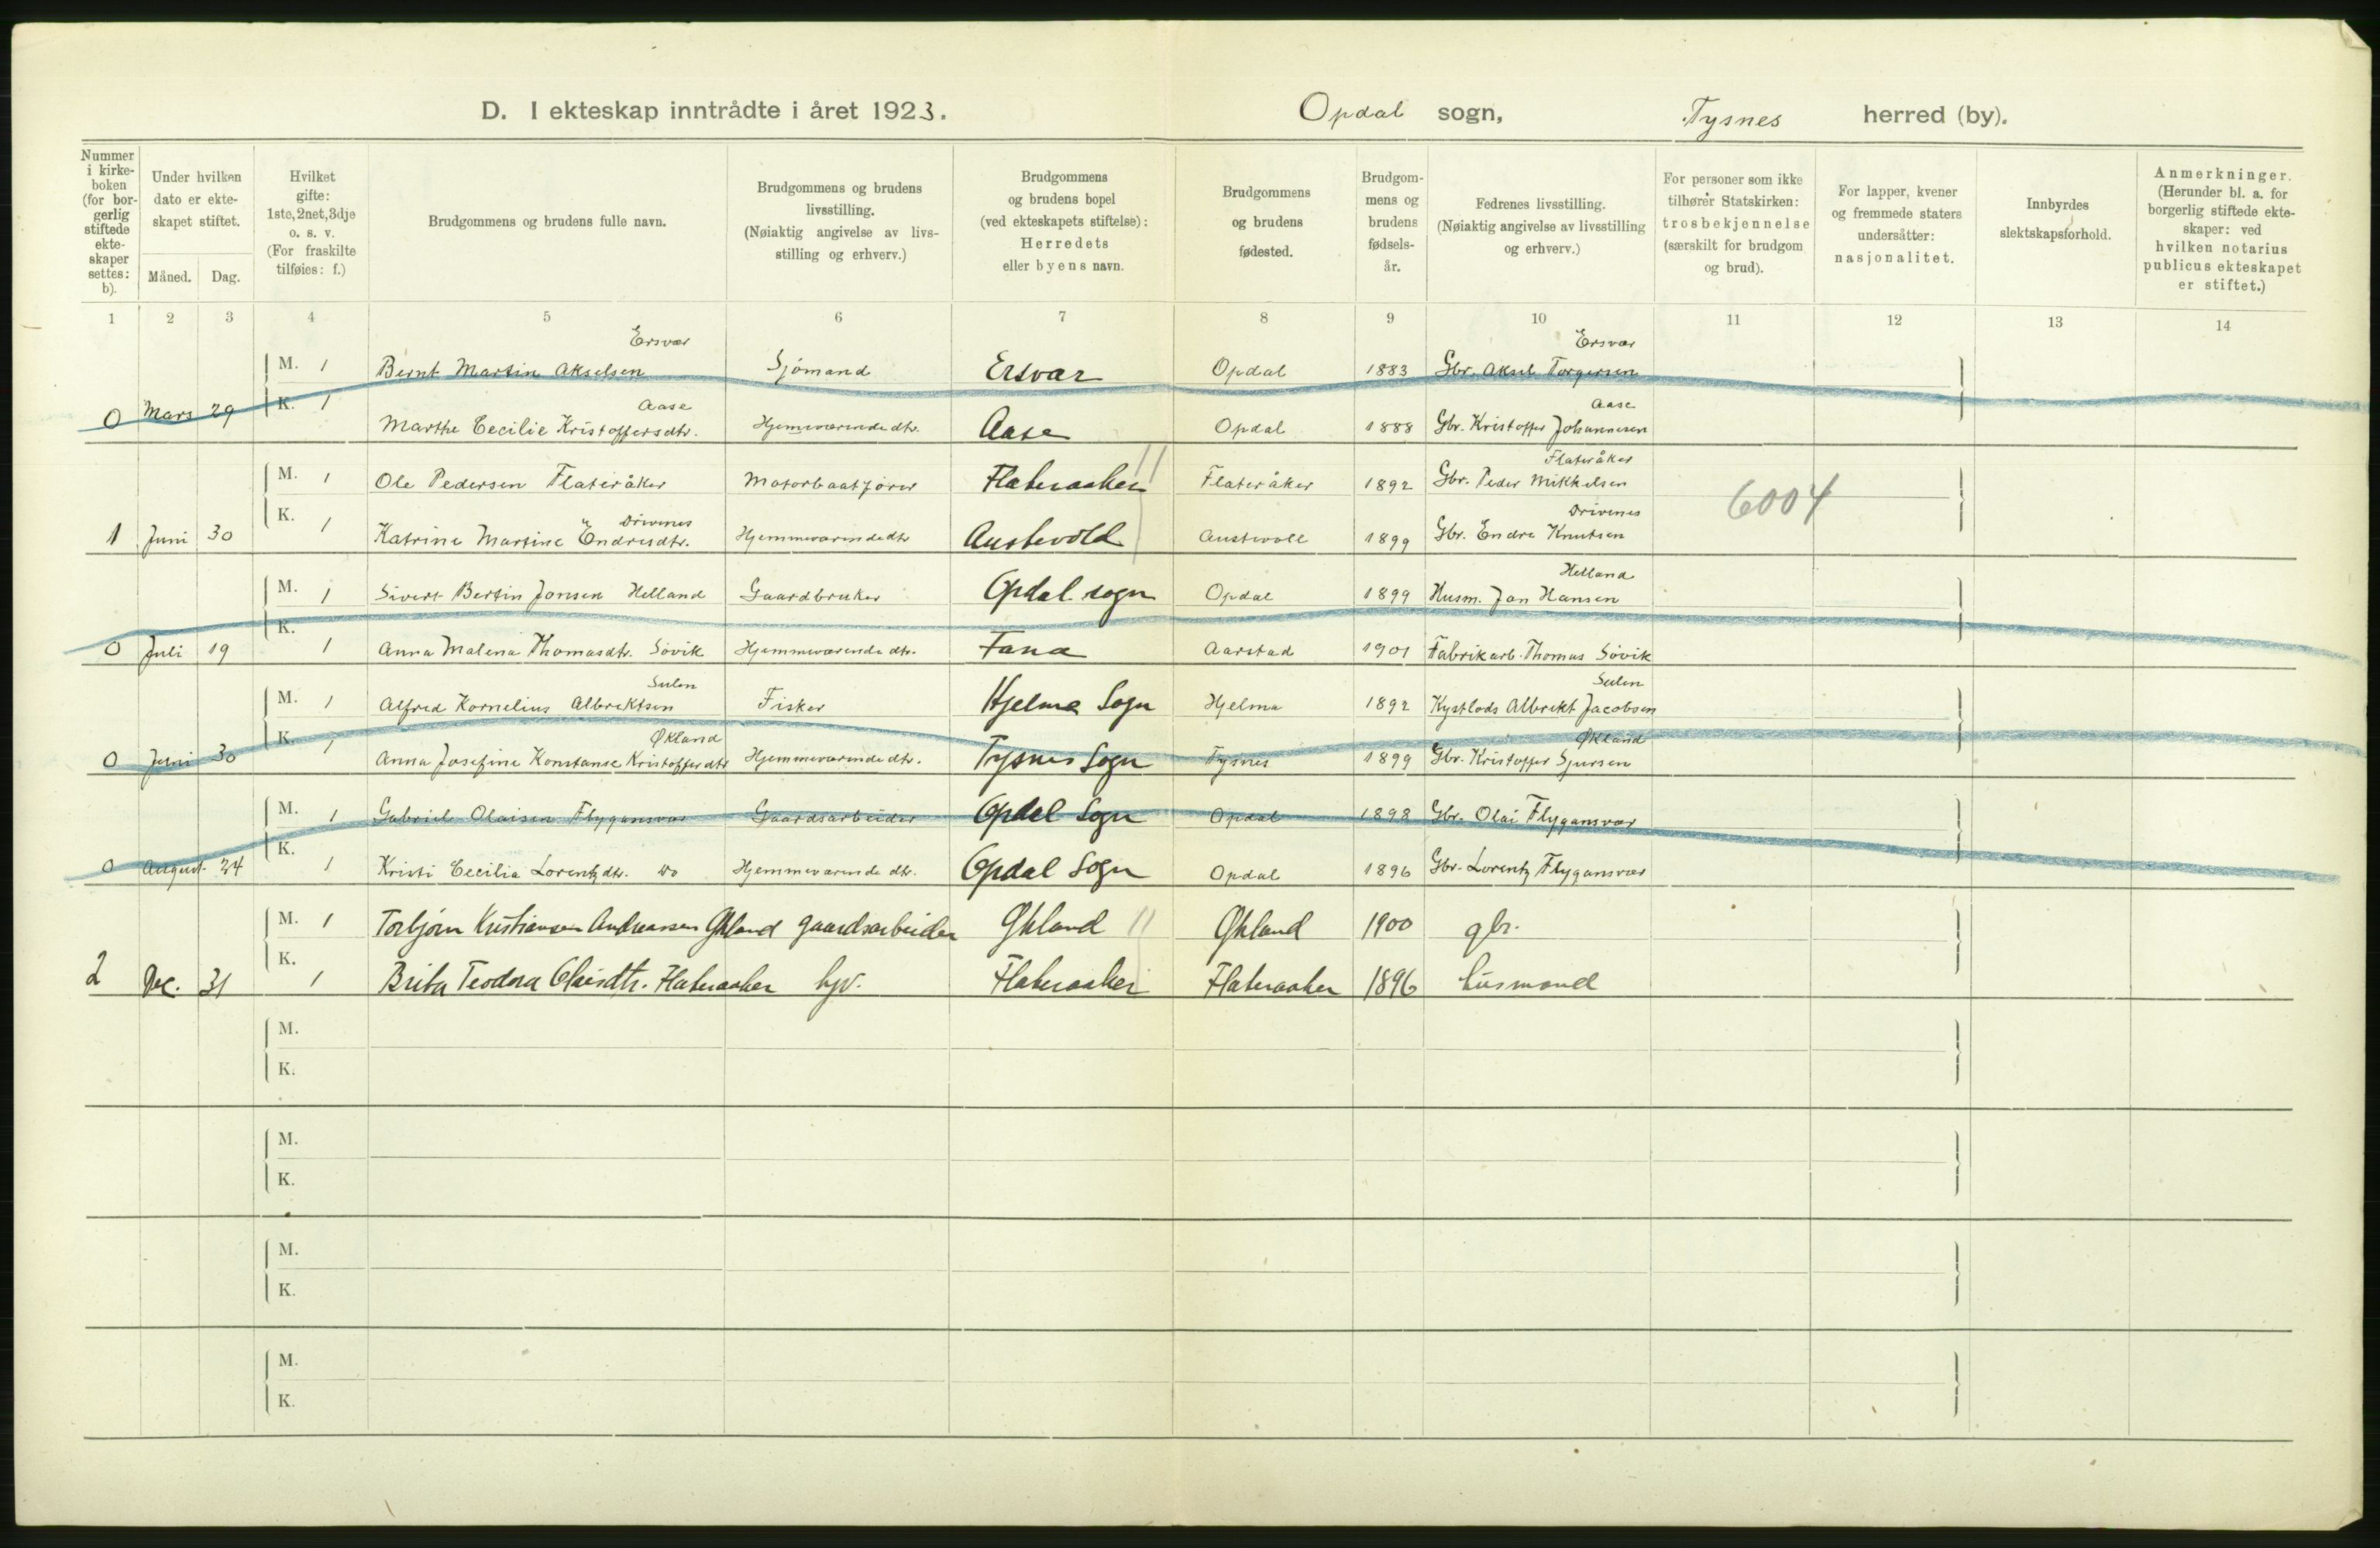 D. I ekteskap inntrådte i året 1923. Opdal sogn, Tysnes herred (by).
Nummer i kirke-boken (for bor-gerlig stiftede ekte-skaper settes: b).
Under hvilken dato er ekte-skapet stiftet.
Måned. Dag.
Hvilket gifte: 1ste, 2net, 3dje o. s. v. (For fraskilte tilføies: f.)
Brudgommens og brudens fulle navn.
Brudgommens og brudens livsstilling. (Nøiaktig angivelse av livs-stilling og erhverv.)
Brudgommens og brudens bopel (ved ekteskapets stiftelse): Herredets eller byens navn.
Brudgommens og brudens fødested.
Brudgom-mens og brudens fødsels-år.
Fedrenes livsstilling. (Nøiaktig angivelse av livsstilling og erhverv.)
For personer som ikke tilhører Statskirken: trosbekjennelse (særskilt for brudgom og brud).
For lapper, kvener og fremmede staters undersåtter: nasjonalitet.
Innbyrdes slektskapsforhold.
Anmerkninger. (Herunder bl. a. for borgerlig stiftede ekte-skaper: ved hvilken notarius publicus ekteskapet er stiftet.)
1 2 3 4 5 6 7 8 9 10 11 12 13 14
Ersvær Ersvær
M. 1 Bernt Martin Akselsen Sjömand Ersvær Opdal 1883 Gbr. Aksel Torgersen
Aase Aase
0 Mars 29 K. 1 Marthe Cecilie Kristoffersdtr. Hjemmeværende dtr. Aase Opdal 1888 Gbr. Kristoffer Johannesen
Flateråker
M. 1 Ole Pedersen Flateråker Motorbaatförer Flateraaker Flateråker 1892 Gbr. Peder Mikkelsen
6004
Drivenes Drivenes
1 Juni 30 K. 1 Katrine Martine Endresdtr. Hjemmeværende dtr Austevold Austevoll 1899 Gbr. Endre Knutsen
Helland
M. 1 Sivert Bertin Jonsen Helland Gaardbruker Opdal sogn Opdal 1899 Husm. Jon Hansen
0 Juli 19 K. 1 Anna Malena Thomasdtr. Sövik Hjemmeværende dtr. Fana Aarstad 1901 Fabrikarb. Thomas Sövik
Sulen Sulen
M. 1 Alfred Kornelius Albrektsen Fisker Hjelme Sogn Hjelme 1892 Kystlods Albrekt Jacobsen
Økland Økland
0 Juni 30 K. 1 Anna Josefine Konstanse Kristoffersdtr Hjemmeværende dtr. Tysnes Sogn Tysnes 1899 Gbr. Kristoffer Sjursen
M. 1 Gabriel Olaisen Flygansvær Gaardsarbeider Opdal Sogn Opdal 1898 Gbr. Olai Flygansvær
0 August 24 K. 1 Kristi Cecilia Lorentzdtr. Do Hjemmeværende dtr. Opdal Sogn Opdal 1896 Gbr. Lorentz Flygansvær
M. 1 Torbjörn Kristiansen Andreassen Økland gaardsarbeider Økland Økland 1900 gbr.
2 Dec. 31 K. 1 Brita Teodora Olaisdtr. Flateraaker hjv. Flateraaker Flateraaker 1896 husmand
M.
K.
M.
K.
M.
K.
M.
K.